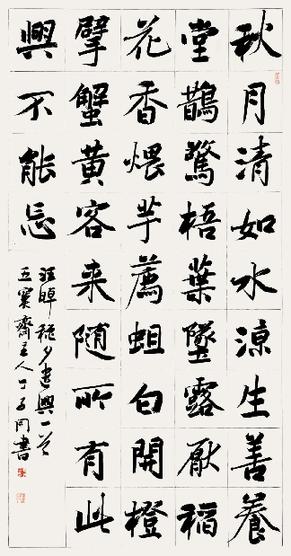 秋月清如水涼生善養
堂鵲驚梧葉墜露厭稻
花香煨芋薦蛆白開橙
擘蟹黄容来隨所有此
興不能忘
汪晫秋夕遣興一首
五案齋主人丁子同書